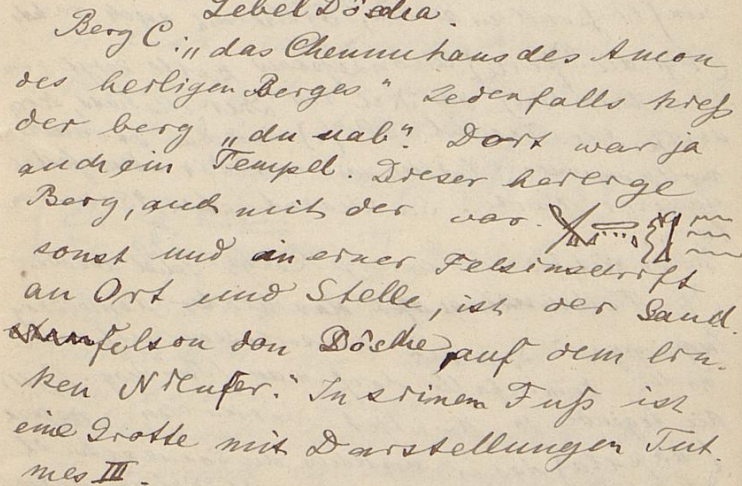 Gebel Dôscha.
Berg C: „das Chnumhaus des Amon
des heiligen Berges" Jedenfalls hieß
der berg „du uab". Dort war ja
auch ein Tempel. Dieser heilige
Berg, auch mit der var.
sonst und in einer Felsinschrift
an Ort und Stelle, ist der Sand-
felsen von Dôsche, auf dem lin-
ken Nilufer." In seinem Fuß ist
eine Grotte mit Darstellungen Tut-
mes III.